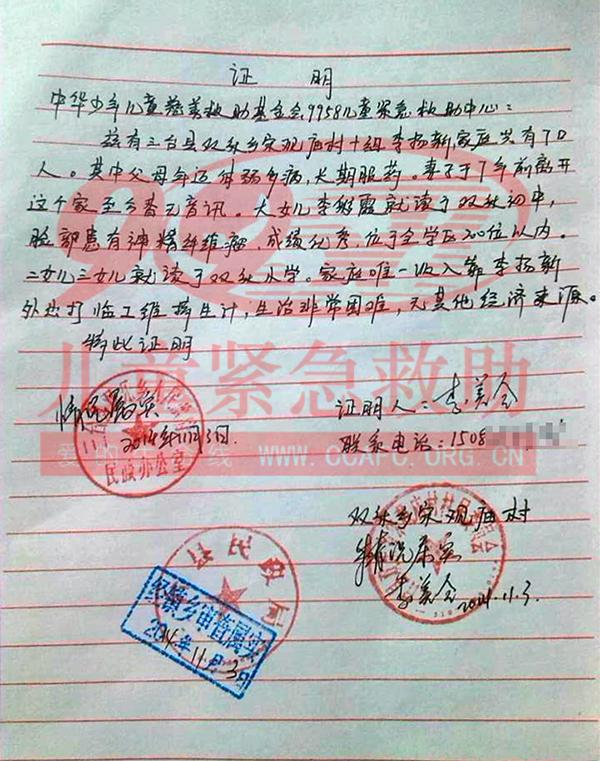 证 明
中华少年儿童慈善救助基金会,9958儿童紧急救助中心:
兹有三台县双秋乡宋观庙村十组李扬新家庭共有7口
人。其中父母年迈体弱多病,长期服药。妻子于7年前离开
这个家至今杳无音讯。大女儿李 霞就读于双秋初中,
脸部患有神精纤维瘤,成绩优秀,位于全学区200位以内。
二女儿三女儿就读于双秋小学。家庭唯一收入靠李扬新
外出打临工维持生计,生活非常困难,无其他经济来源。
特此证明
9958
儿童紧急救助
情况属实
2014年11月3日
民政办公室
证明人:李美全
联系电话:1508
WWW.CCAFC.ORG.CN
双秋乡宋观庙村
情况属实
李美全 2014.11.3.
经镇乡审查属实
2014年11月3日
民政局